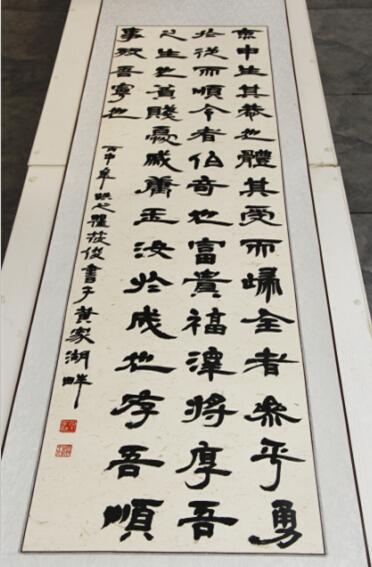 烹申生其恭也體其受而歸全者參乎勇
於從而順令者伯奇也富貴福澤將厚吾
之生也貧賤憂戚庸玉汝於成也存吾順
事歿吾寧也
丙申 瞿 俊書于黃家湖畔